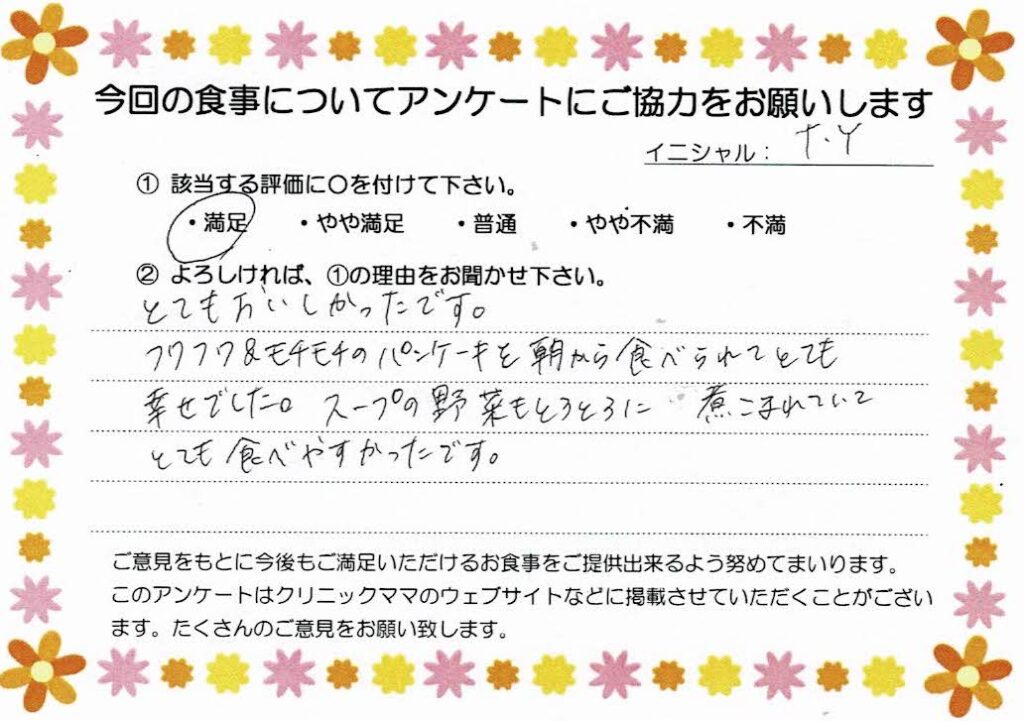 今回の食事についてアンケートにご協力をお願いします
イニシャル： T.Y
① 該当する評価に○を付けて下さい。
・満足 ・やや満足 ・普通 ・やや不満 ・不満
② よろしければ、①の理由をお聞かせ下さい。
とてもおいしかったです。
フワフワ&モチモチのパンケーキを朝から食べられてとても
幸せでした。スープの野菜もとろとろに 煮こまれていて
とても食べやすかったです。
ご意見をもとに今後もご満足いただけるお食事をご提供出来るよう努めてまいります。
このアンケートはクリニックママのウェブサイトなどに掲載させていただくことがござい
ます。たくさんのご意見をお願い致します。